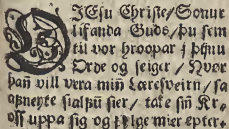 O JEsu Christe / Sonur
lifanda Guds / þu sem
til vor hroopar i þijnu
Orde og seiger / Hvør
han vill vera minn Læresveirn / sa
afneyte sialfū sier / take sinn Kr-
oss uppa sig og fylge mier epter.